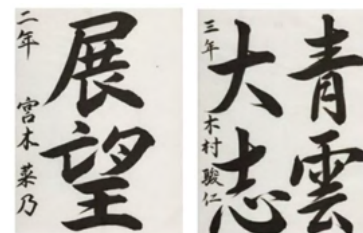 展望
二年 宮木菜乃
青雲
大志
三年 木村駿仁